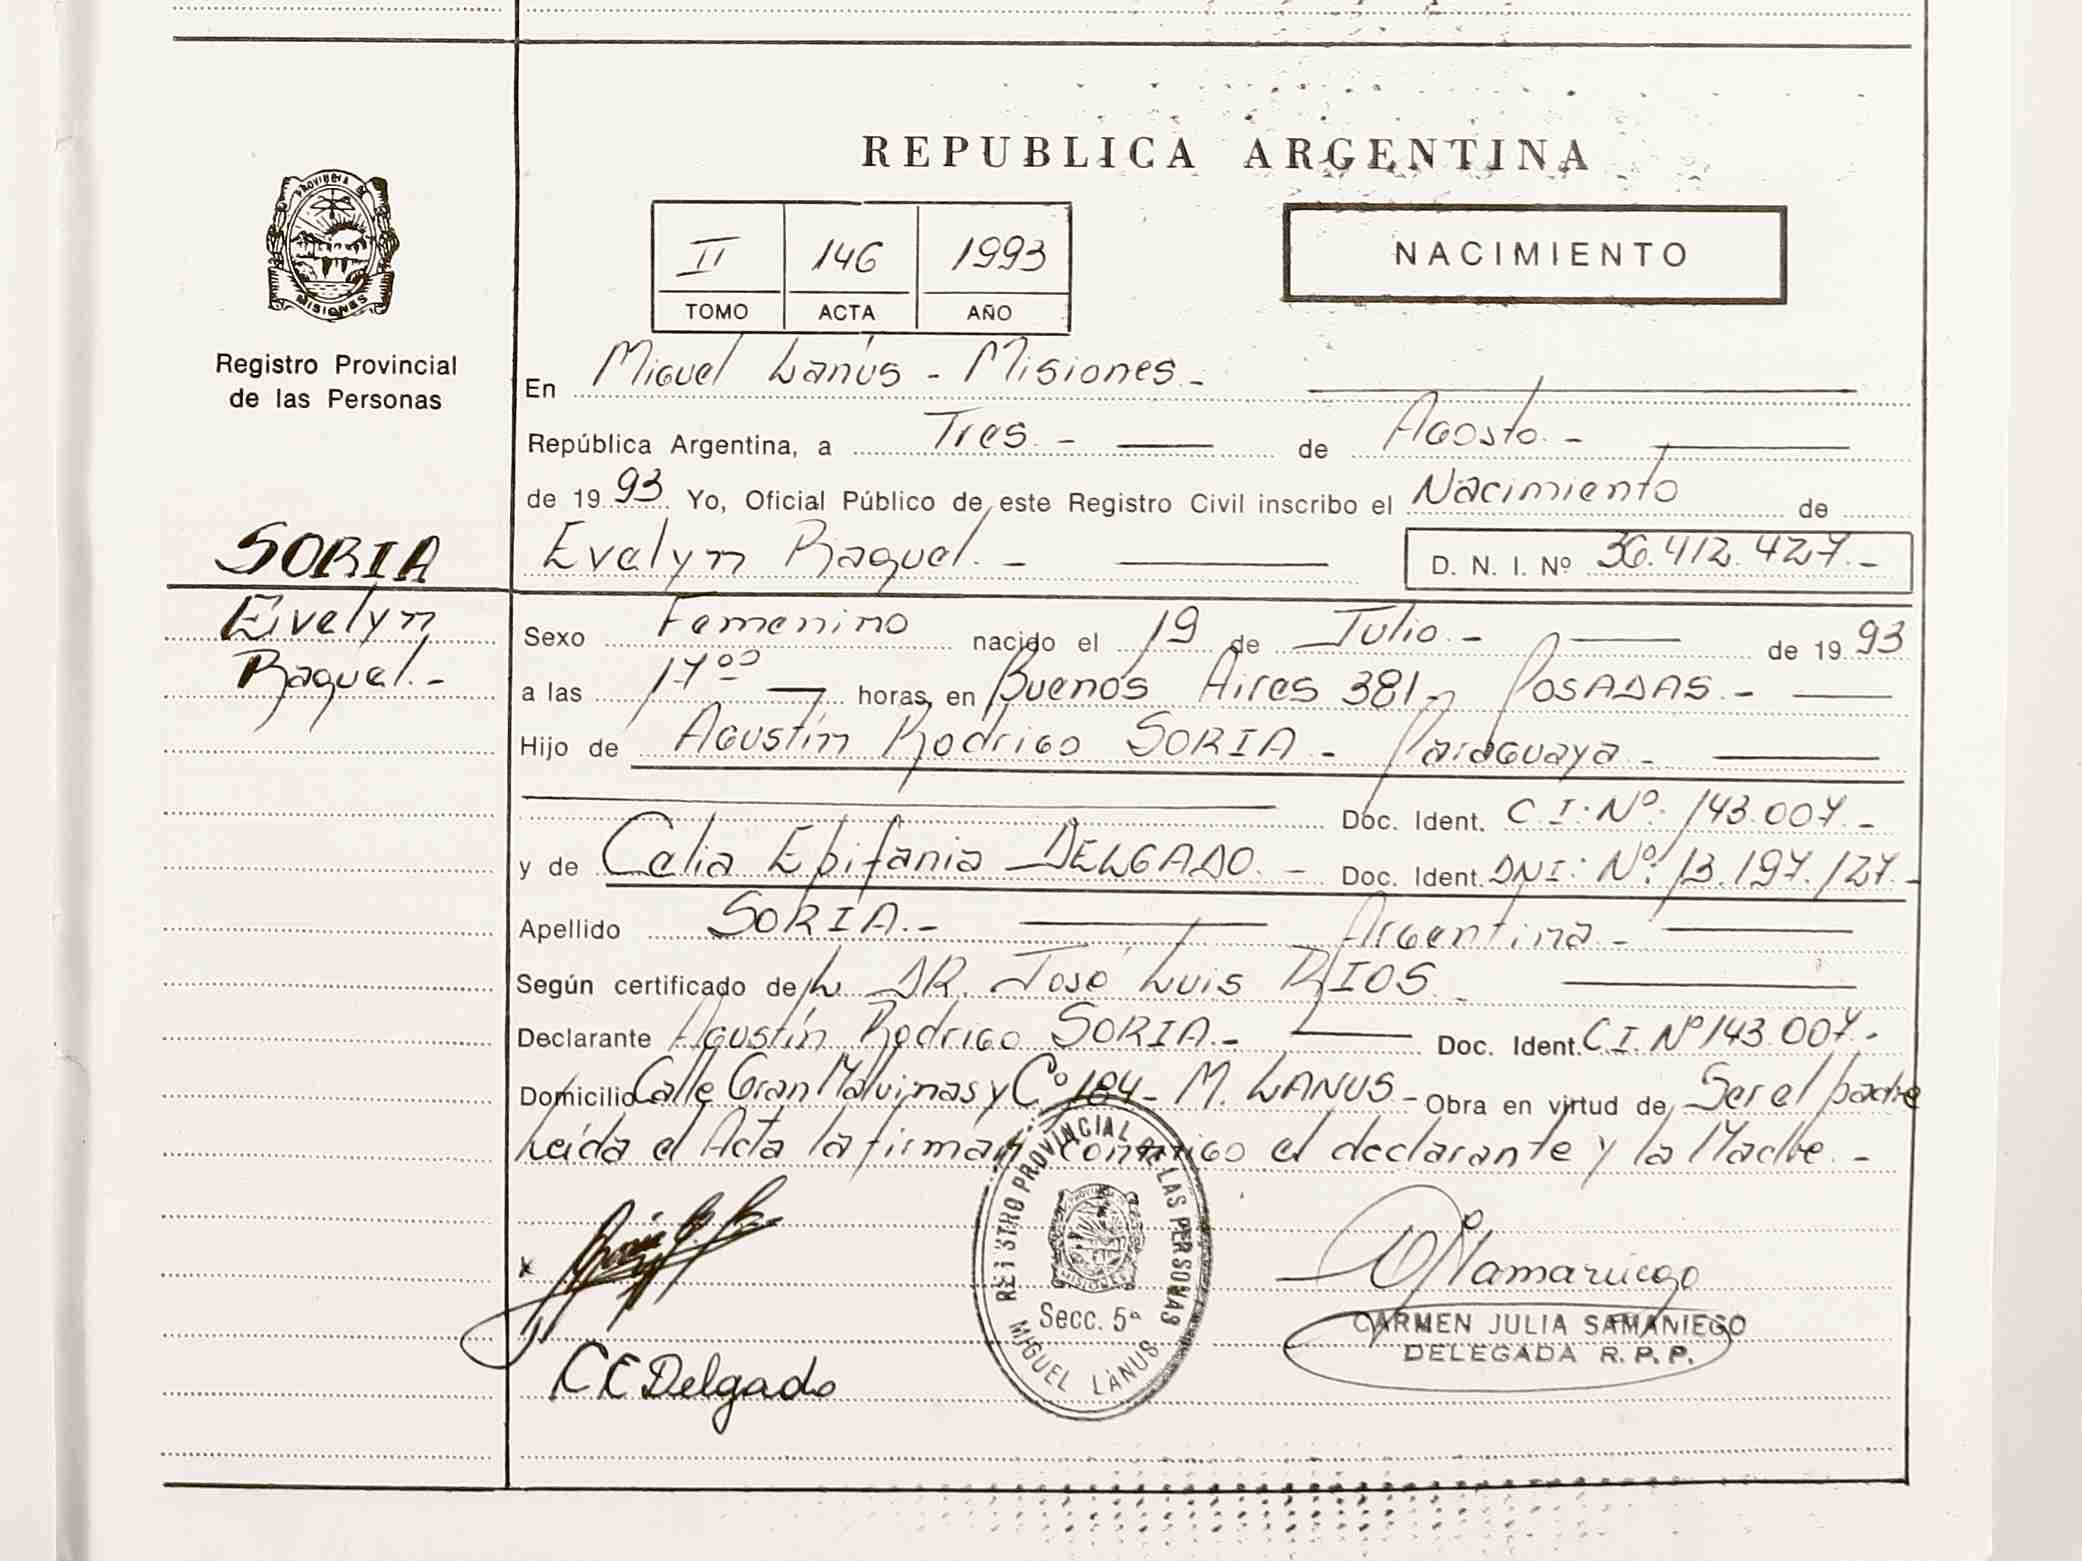 REPUBLICA ARGENTINA
PROVINCIA DE
MISIONES
Registro Provincial
de las Personas
II 146 1993
TOMO ACTA AÑO
NACIMIENTO
En Miguel Lanús - Misiones.-
República Argentina, a Tres.- de Agosto.-
de 1993 Yo, Oficial Público de este Registro Civil inscribo el Nacimiento de
SORIA
Evelyn Raquel.-
Evelyn Raquel.- D. N. I. Nº 36.412.427.-
Sexo Femenino nacido el 19 de Julio.- de 1993
a las 17⁰⁰ horas, en Buenos Aires 381, POSADAS.-
Hijo de Agustín Rodrigo SORIA - Paraguaya.-
Doc. Ident. C I. Nº. 143.007.-
y de Celia Epifania DELGADO.- Doc. Ident. DNI: Nº. 13.197.127.-
Apellido SORIA.- Argentina.-
Según certificado de L DR. José Luis RIOS.-
Declarante Agustín Rodrigo SORIA.- Doc. Ident. C.I. Nº 143.007.-
Domicilio Calle Gran Malvinas y Cº 184- M. LANUS- Obra en virtud de Ser el padre
Leída el Acta la firman conmigo el declarante y la Madre.-
x
C E Delgado
REGISTRO PROVINCIAL DE LAS PERSONAS
PROVINCIA DE
MISIONES
Secc. 5ª
MIGUEL LANUS
CARMEN JULIA SAMANIEGO
DELEGADA R. P. P.